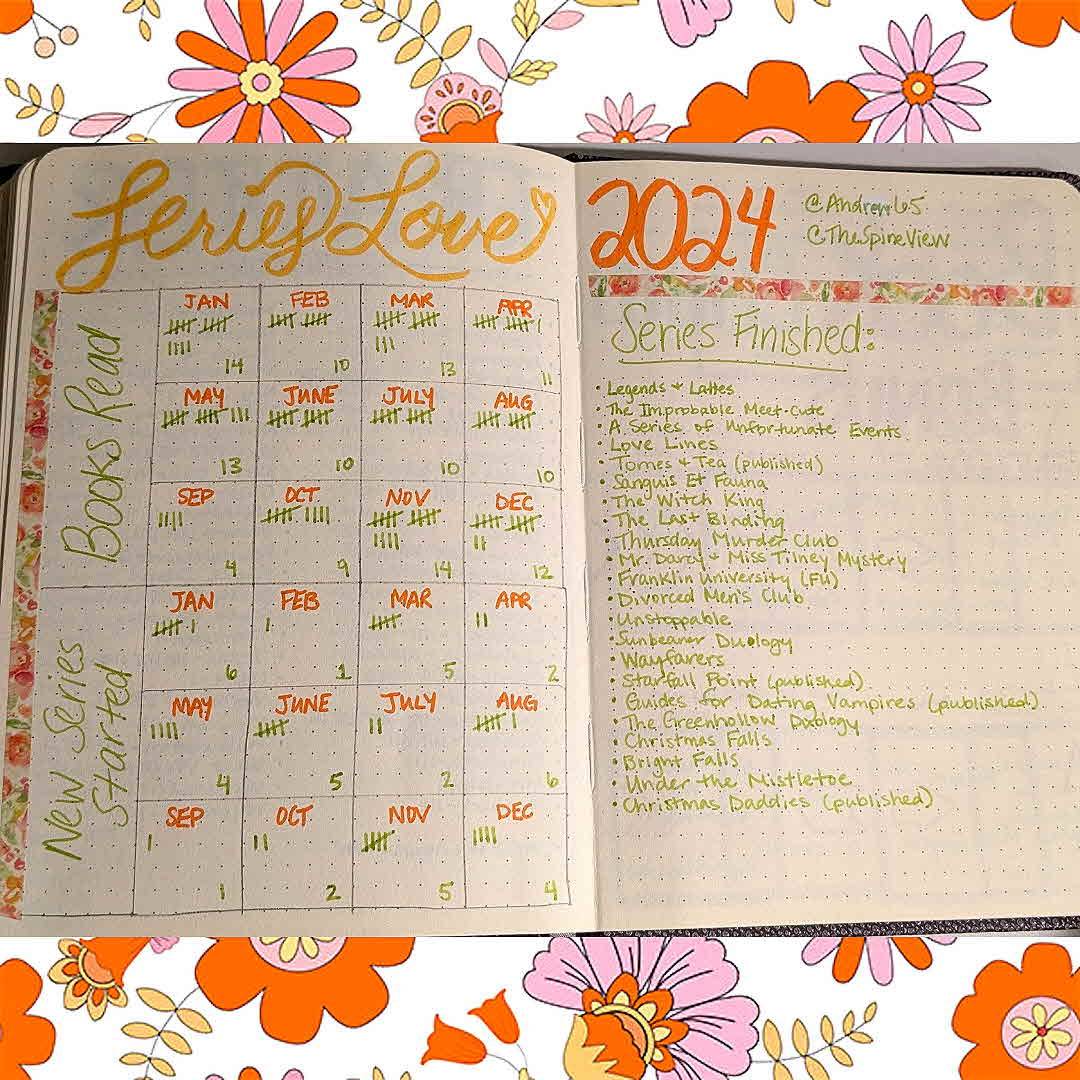 Series Love
Books Read
JAN FEB MAR APR
14 10 13 11
MAY JUNE JULY AUG
13 10 10 10
SEP OCT NOV DEC
4 9 14 12
New Series
Started
JAN FEB MAR APR
6 1 5 2
MAY JUNE JULY AUG
4 5 2 6
SEP OCT NOV DEC
1 2 5 4
2024
@Andrew65
@TheSpineView
Series Finished:
• Legends & Lattes
• The Improbable Meet-Cute
• A Series of Unfortunate Events
• Love Lines
• Tomes & Tea (published)
• Sanguis Et Fauna
• The Witch King
• The Last Binding
• Thursday Murder Club
• Mr. Darcy & Miss Tilney Mystery
• Franklin University (FU)
• Divorced Men's Club
• Unstoppable
• Sunbearer Duology
• Wayfarers
• Starfall Point (published)
• Guides for Dating Vampires (published)
• The Greenhollow Duology
• Christmas Falls
• Bright Falls
• Under the Mistletoe
• Christmas Daddies (published)